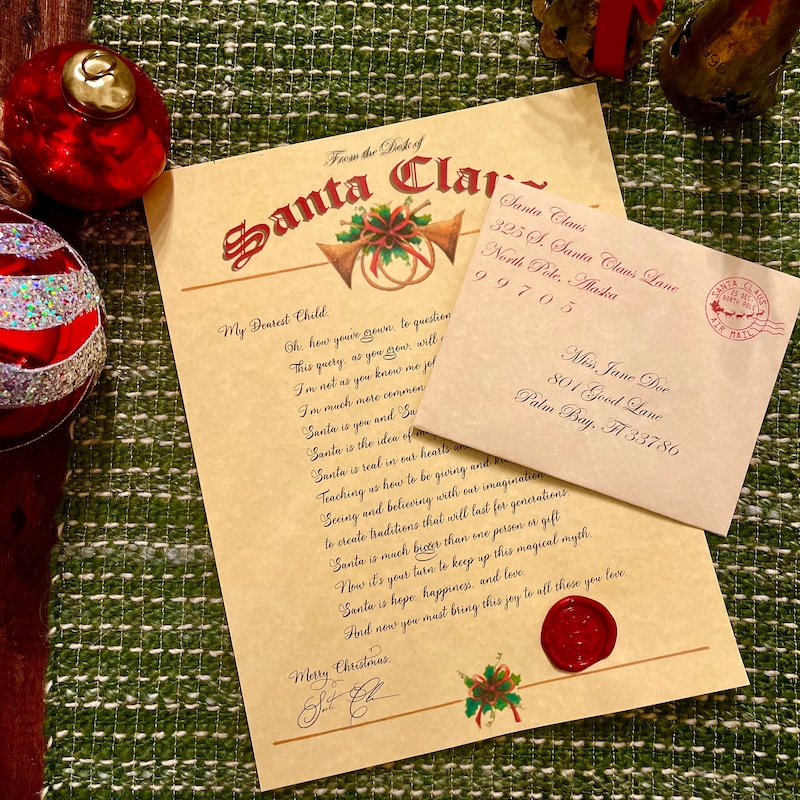 From the Desk of
Santa Claus
My Dearest Child,
Oh, how you've grown, to question
This query, as you grow, will
I'm not as you know me
I'm much more common
Santa is you and
Santa is the idea of
Santa is real in our hearts
Teaching us how to be giving and
Seeing and believing with our imagination
to create traditions that will last for generations.
Santa is much bigger than one person or gift
Now it's your turn to keep up this magical myth.
Santa is hope, happiness, and love.
And now you must bring this joy to all those you love.
Merry Christmas,
Santa Claus
325 S. Santa Claus Lane
North Pole, Alaska
9 9 7 0 5
SANTA CLAUS
25 DEC
NORTH POLE
AIR MAIL
Miss Jane Doe
801 Good Lane
Palm Bay, Fl 33786